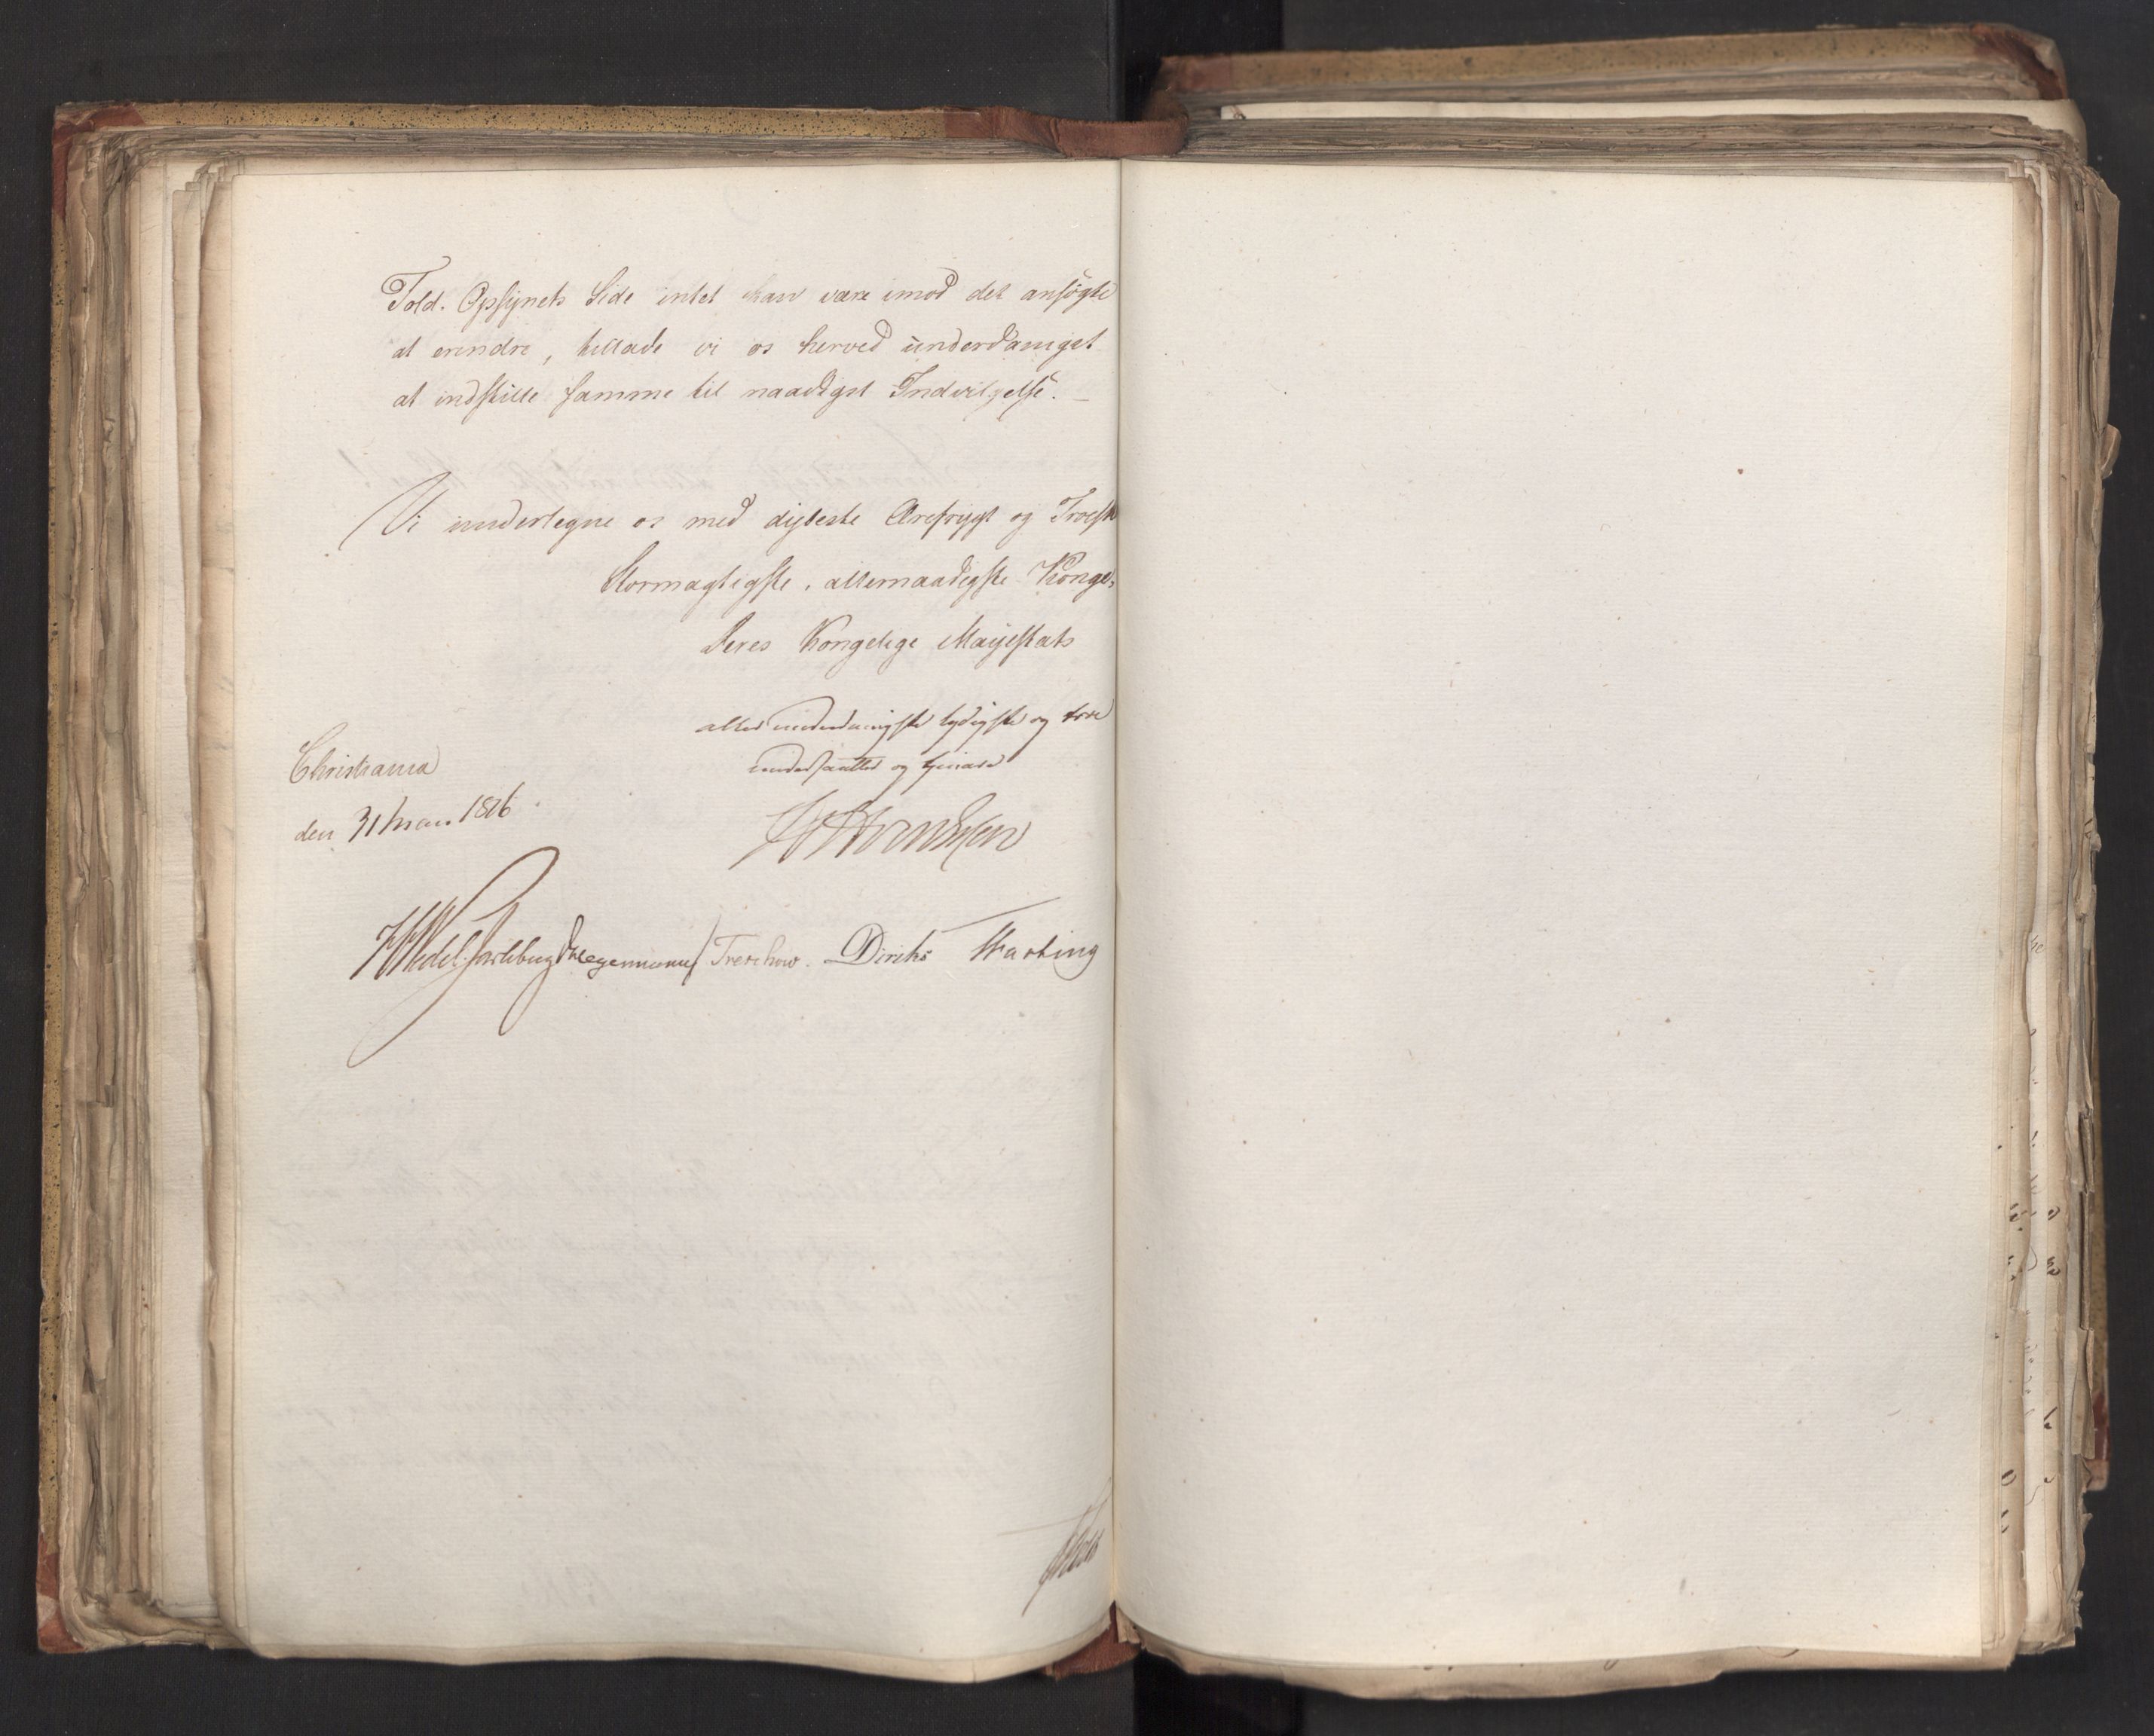 Told. Opsynets Side intet kan være imod det ansøgte
at erindre, tillade vi os herved underdanigst
at indstille samme til naadigst Indvilgelse. –
Vi undertegne os med dybeste Ærefrygt og Troesk
Stormægtigste, allernaadigste Konge,
Deres Kongelige Majestæts
allerunderdanigste lydigste og troe
undersaatter og tjenere
Christiania
den 31 Mars 1816
HWedel Jarlsberg Hegermann Treschow. Diriks
Holst